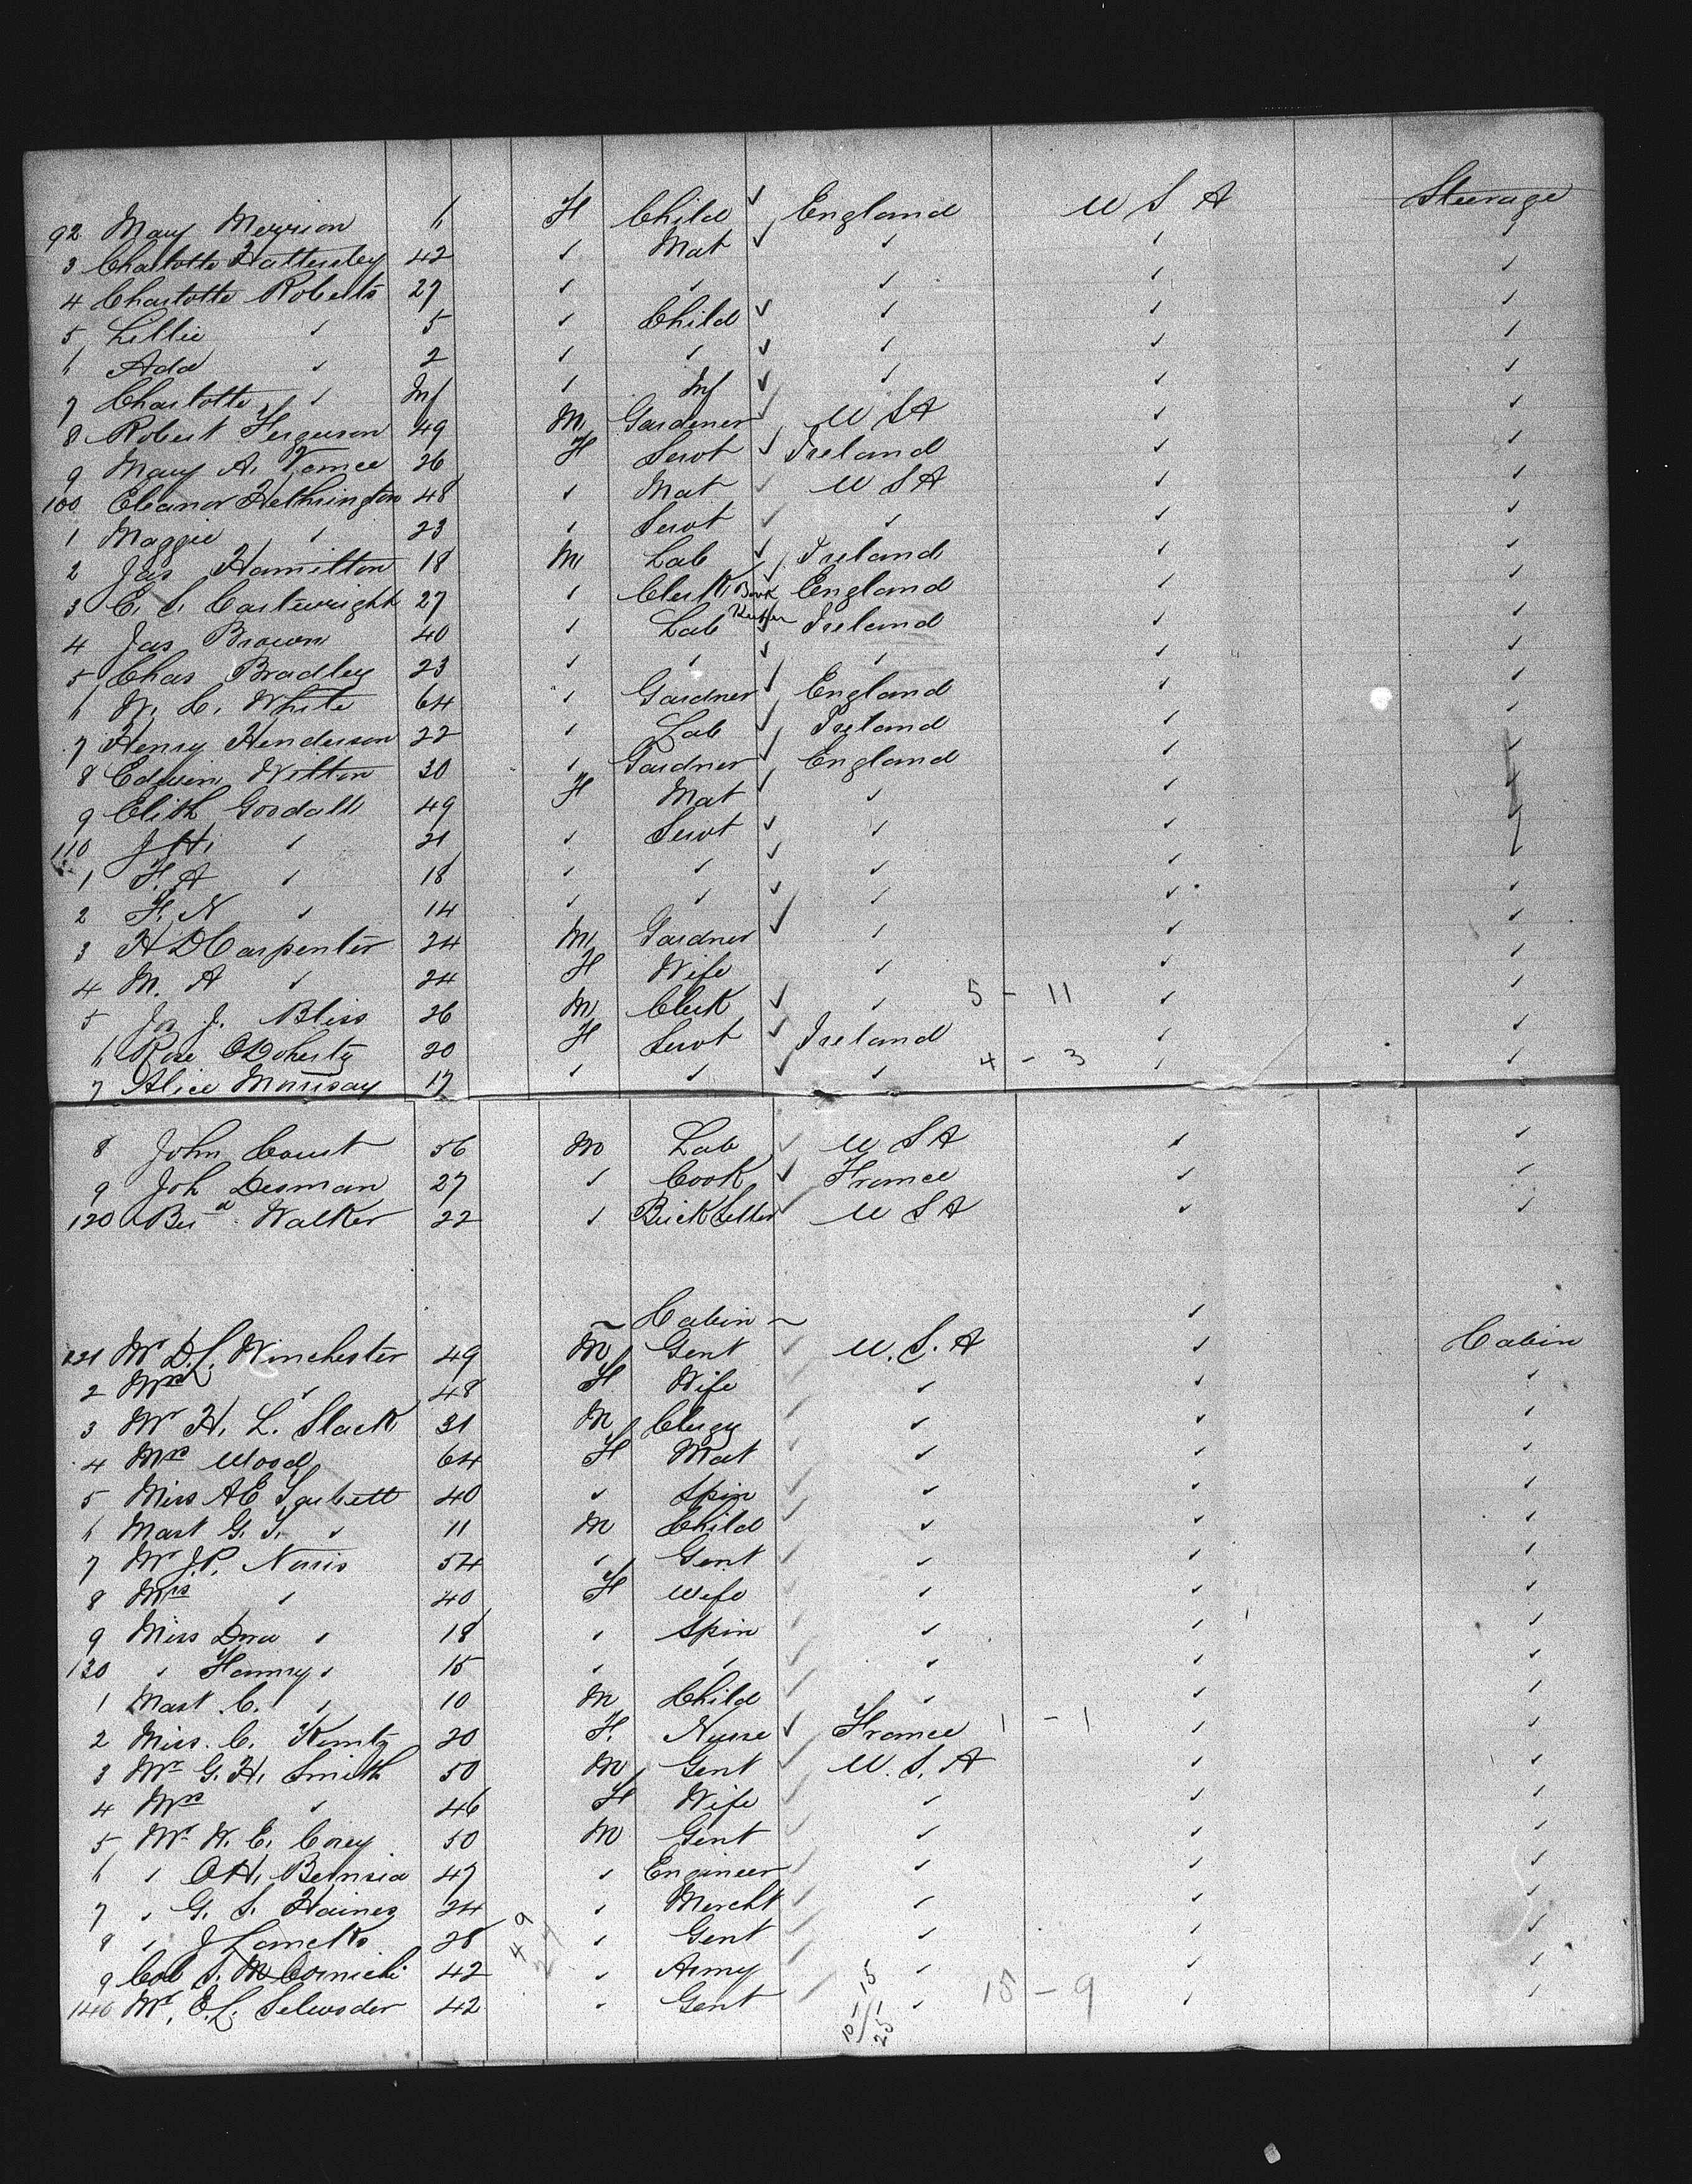 92 Mary Merrion 6 F Child ✓ England U S A Steerage
3 Charlotte Hattersley 42 ✓ Mat ✓ ✓ ✓ ✓
4 Charlotte Roberts 27 ✓ ✓ ✓ ✓ ✓
5 Lillie ✓ 5 ✓ Child ✓ ✓ ✓ ✓
6 Ada ✓ 2 ✓ ✓ ✓ ✓ ✓ ✓
7 Charlotte ✓ Inf ✓ Inf ✓ ✓ ✓ ✓
8 Robert Ferguson 49 M Gardener ✓ U S A ✓ ✓
9 Mary A. Vance 26 F Servt ✓ Ireland ✓ ✓
100 Eleanor Hethrington 48 ✓ Mat ✓ U S A ✓ ✓
1 Maggie ✓ 23 ✓ Servt ✓ ✓ ✓ ✓
2 Jas Hamilton 18 M Lab ✓ Ireland ✓ ✓
3 E. S. Cartwright 27 ✓ Clerk Book Keeper ✓ England ✓ ✓
4 Jas Brown 40 ✓ Lab ✓ Ireland ✓ ✓
5 Chas Bradley 23 ✓ ✓ ✓ ✓ ✓ ✓
6 W. C. White 64 ✓ Gardner ✓ England ✓ ✓
7 Henry Henderson 22 ✓ Lab ✓ Ireland ✓ ✓
8 Edwin Wilton 30 ✓ Gardner ✓ England ✓ ✓
9 Elizth Goodall 49 F Mat ✓ ✓ ✓ ✓
110 J. H. ✓ 21 ✓ Servt ✓ ✓ ✓ ✓
1 F. A ✓ 18 ✓ ✓ ✓ ✓ ✓ ✓
2 F. N ✓ 14 ✓ ✓ ✓ ✓ ✓ ✓
3 H D Carpenter 24 M Gardner ✓ ✓ ✓ ✓
4 M. A ✓ 24 F Wife ✓ ✓ ✓
5 J. Bliss 26 M Clerk ✓ ✓ 5 - 11 ✓ ✓
6 Rose O'Doherty 20 F Servt ✓ Ireland ✓ ✓
7 Alice Morrisay 17 ✓ ✓ ✓ ✓ 4 - 3 ✓ ✓
8 John Coust 56 M Lab ✓ U S A ✓ ✓
9 Joh Desman 27 ✓ Cook ✓ France ✓ ✓
120 Walker 22 ✓ ✓ U S A ✓ ✓
Cabin ✓
121 Mr D. L. Winchester 49 M Gent ✓ U. S. A ✓ Cabin
2 Mrs ✓ 48 F Wife ✓ ✓ ✓
3 Mr H. L. Slack 31 M Clergy ✓ ✓ ✓ ✓
4 Mrs Wood 64 F Mat ✓ ✓ ✓ ✓
5 Miss A E 40 ✓ Spin ✓ ✓ ✓ ✓
6 Mast G. T. ✓ 11 M Child ✓ ✓ ✓ ✓
7 Mr J. P. Norris 54 ✓ Gent ✓ ✓ ✓ ✓
8 Mrs ✓ 40 F Wife ✓ ✓ ✓ ✓
9 Miss Dora ✓ 18 ✓ Spin ✓ ✓ ✓ ✓
130 ✓ Fanny ✓ 15 ✓ ✓ ✓ ✓ ✓ ✓
1 Mast C. ✓ 10 M Child ✓ ✓ ✓ ✓
2 Miss. C. Kuntz 20 F. Nurse ✓ France 1 - 1 ✓ ✓
3 Mr G. H. Smith 50 M Gent ✓ U. S. A ✓ ✓
4 Mrs ✓ 46 F Wife ✓ ✓ ✓ ✓
5 Mr W. E. Corey 50 M Gent ✓ ✓ ✓ ✓
6 ✓ O. H. 47 ✓ Engineer ✓ ✓ ✓ ✓
7 ✓ G. S. Haines 24 ✓ Mercht ✓ ✓ ✓ ✓
8 ✓ J 28 49 ✓ Gent ✓ ✓ ✓ ✓
9 Col 42 ✓ Army ✓ ✓ ✓ ✓
140 Mr. E. L. 42 ✓ Gent ✓ ✓ 15 - 9 ✓ ✓
10 - 15
25